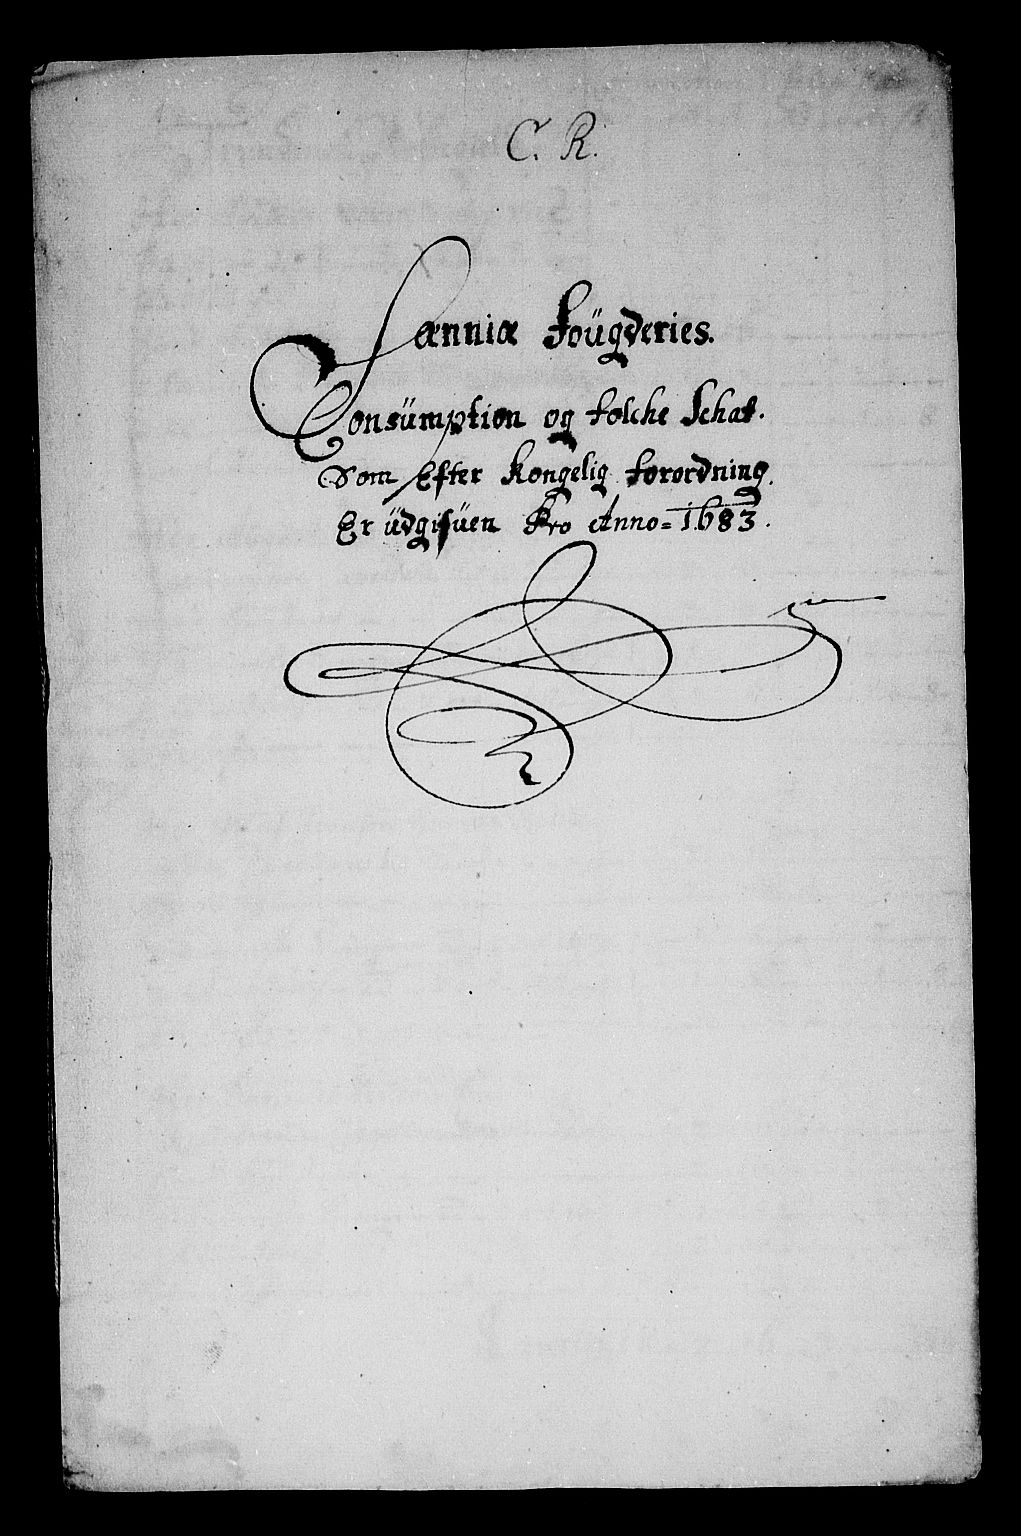 C. R.
Sænniæ foügderies.
Consümption og folche Schat.
Som Efter Kongelig forordning.
Er üdgifüen Pro Anno = 1683.